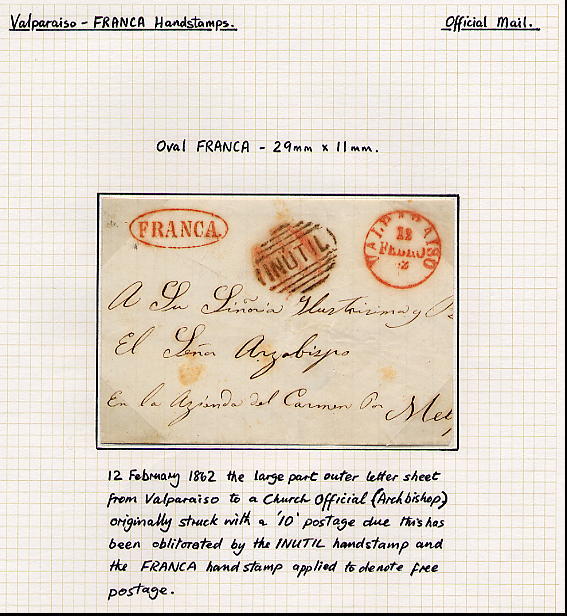 Valparaiso - FRANCA Handstamps.
Official Mail.
Oval FRANCA - 29mm x 11mm.
FRANCA.
INUTIL
VALPARAISO
12
FEBRO
2
A Su Señoria Ilustrisima y
El Señor Arzobispo
En la Azienda del Carmen Por Mel
12 February 1862 the large part outer letter sheet
from Valparaiso to a Church Official (Archbishop)
originally struck with a '10' postage due this has
been obliterated by the INUTIL handstamp and
the FRANCA handstamp applied to denote free
postage.